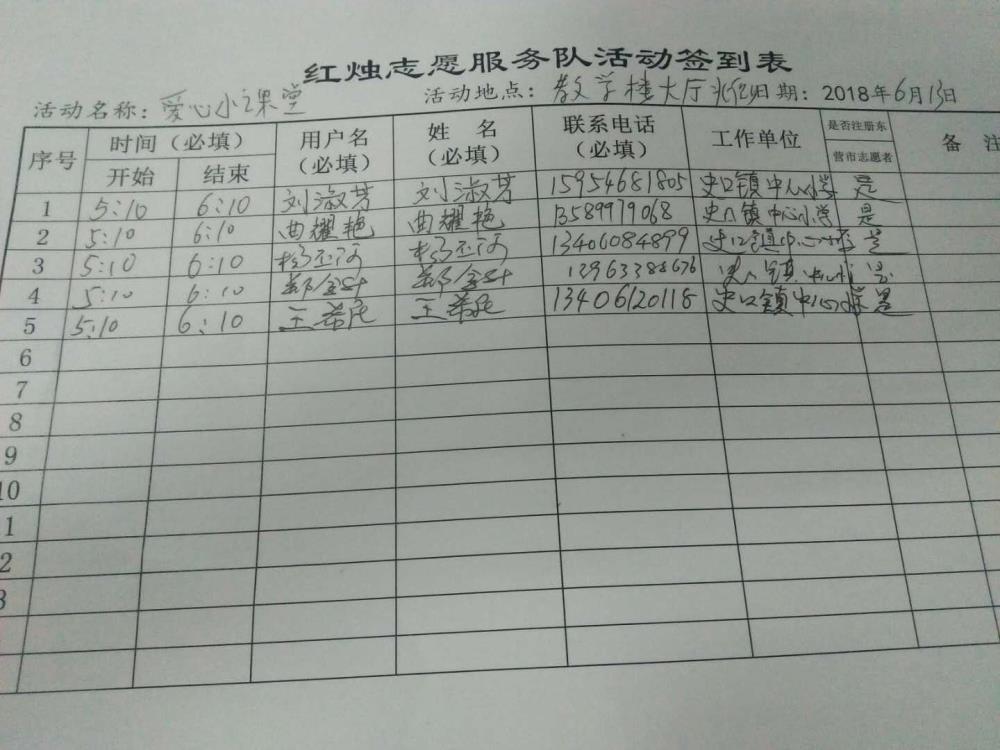 红烛志愿服务队活动签到表
活动名称：爱心小课堂 活动地点：教学楼大厅 日期：2018年6月13日
序号 时间（必填） 用户名（必填） 姓名（必填） 联系电话（必填） 工作单位 是否注册东营市志愿者 备注
开始 结束
1 5:10 6:10 刘淑芳 刘淑芳 15954681805 史口镇中心小学 是
2 5:10 6:10 曲耀艳 曲耀艳 13589979068 史口镇中心小学 是
3 5:10 6:10 13406084899 史口镇中心小学 是
4 5:10 6:10 史口镇中心小学 是
5 5:10 6:10 王希 王希 13406120118 史口镇中心小学 是
6
7
8
9
10
1
2
3